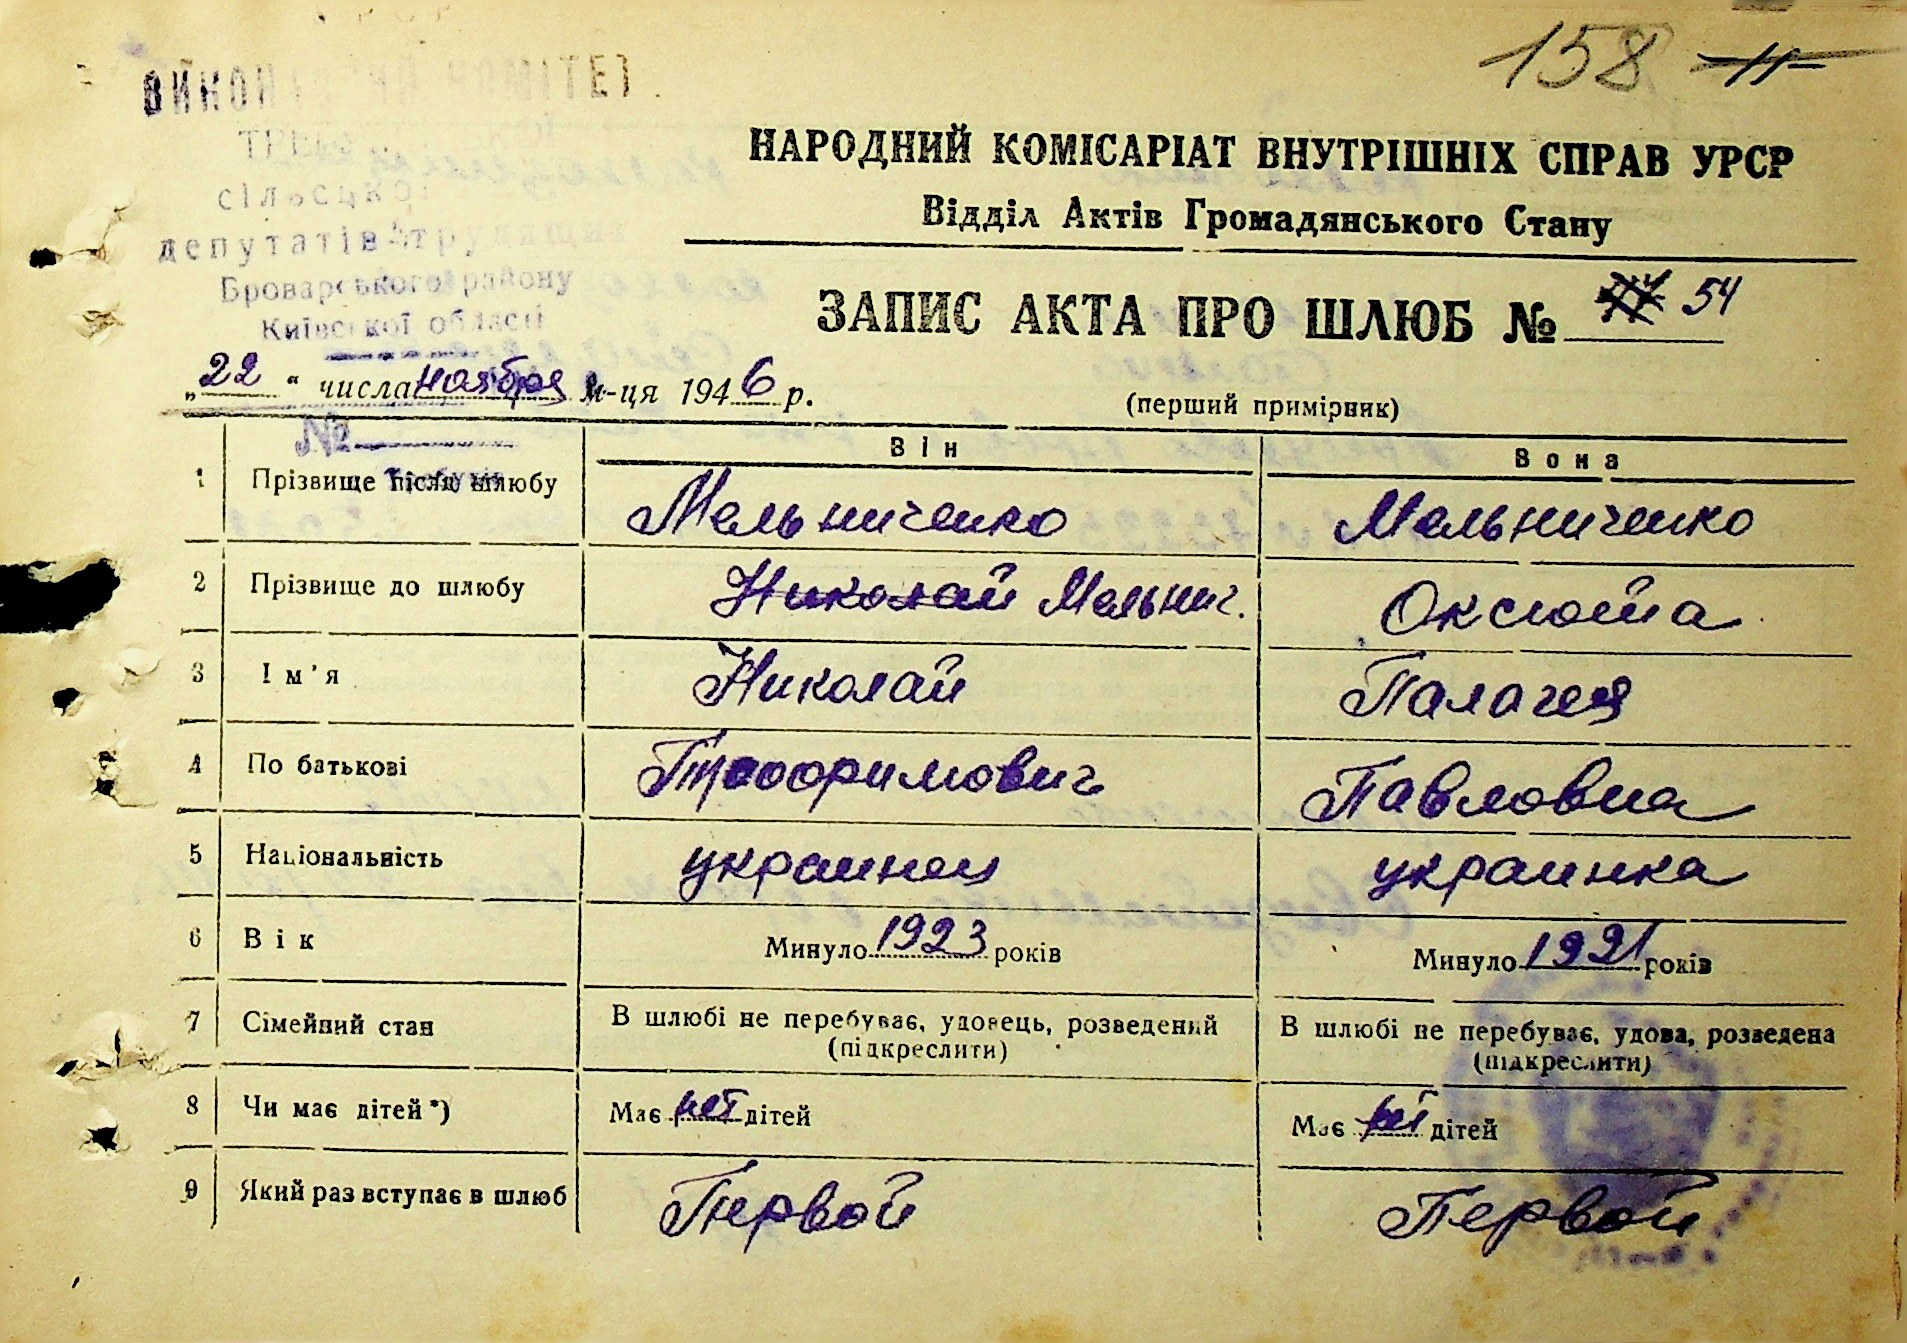 158 11
ВИКОН КОМІТЕТ
сільської
депутатів трудящих
Броварського району
Київської області
НАРОДНИЙ КОМІСАРІАТ ВНУТРІШНІХ СПРАВ УРСР
Відділ Актів Громадянського Стану
ЗАПИС АКТА ПРО ШЛЮБ № 54
„22“ числа ноября м-ця 1946 р.
(перший примірник)
№
Він Вона
1 Прізвище після шлюбу Мельниченко Мельниченко
2 Прізвище до шлюбу Николай Мельнич. Оксюта
3 Ім'я Николай Палагея
4 По батькові Трофимович Павловна
5 Національність украинец украинка
6 Вік Минуло 1923 років Минуло 1921 років
7 Сімейний стан В шлюбі не перебуває, удовець, розведений В шлюбі не перебуває, удова, розведена
(підкреслити) (підкреслити)
8 Чи має дітей*) Має нет дітей Має нет дітей
9 Який раз вступає в шлюб Первой Первой